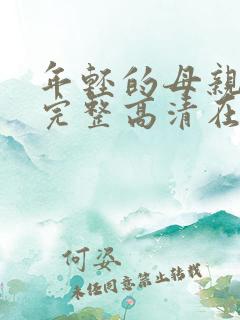 年轻的母亲
完整高清在
何姿
未经同意禁止转载